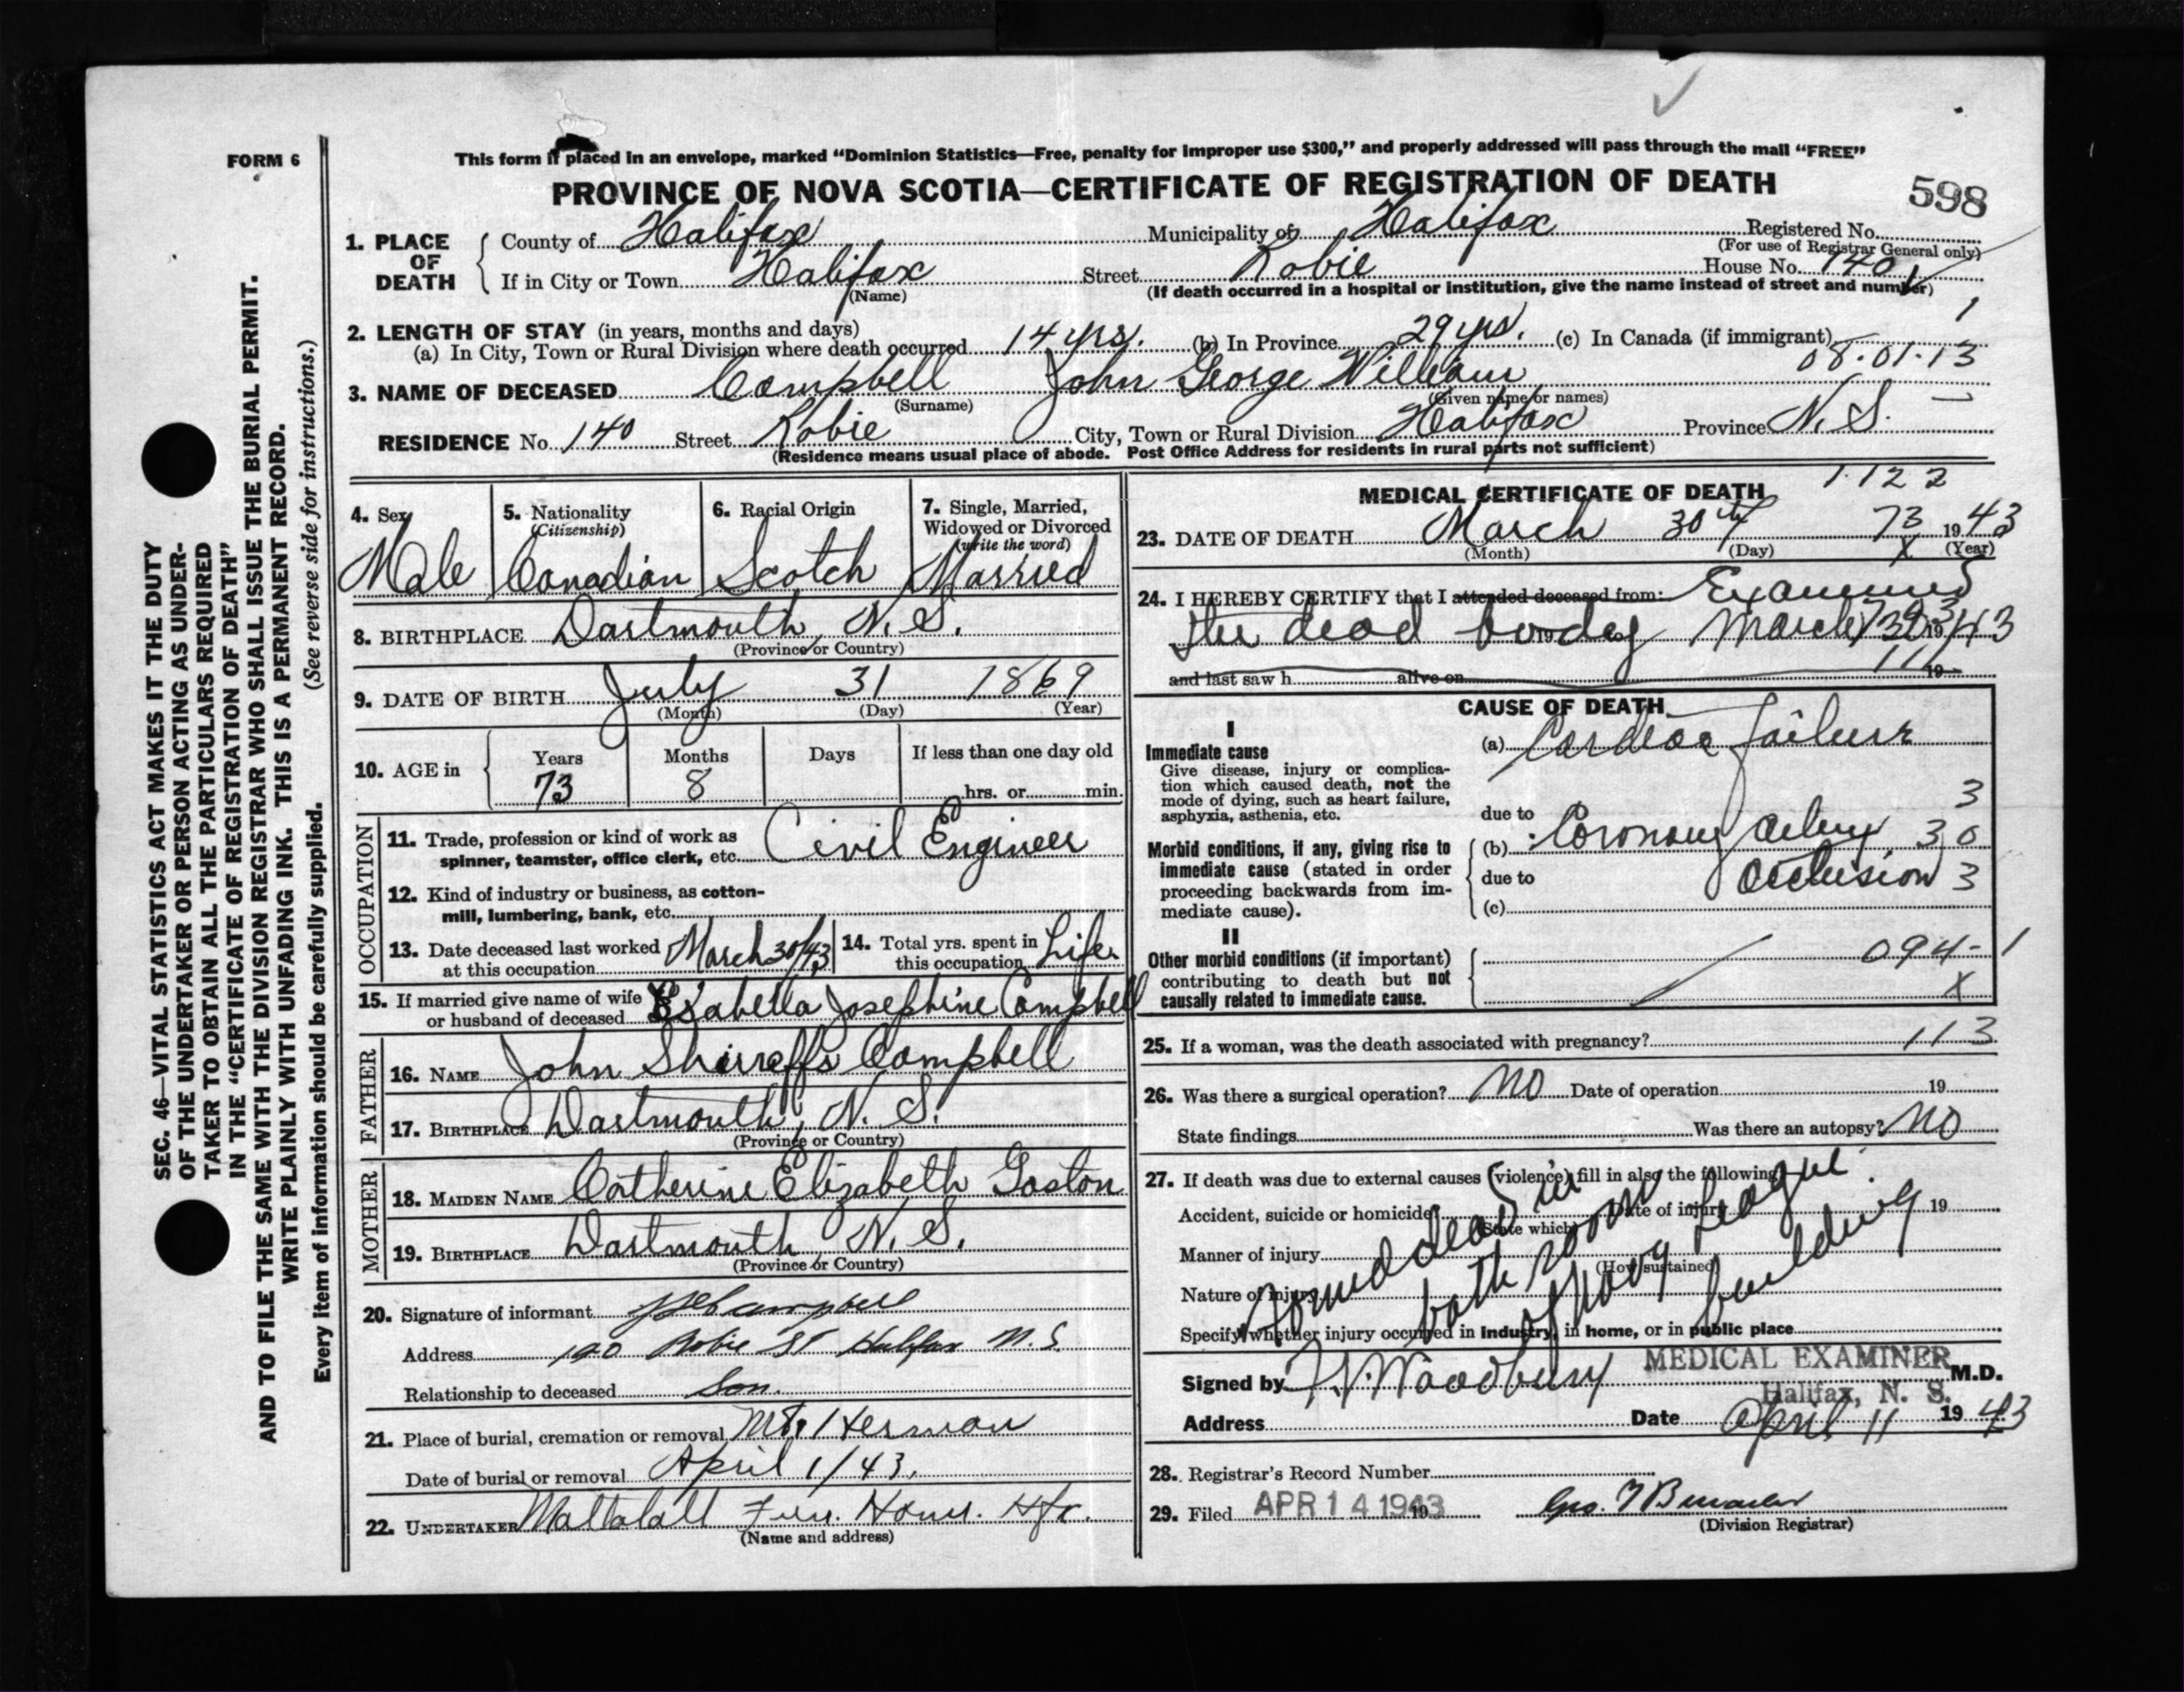 FORM 6
This form if placed in an envelope, marked “Dominion Statistics—Free, penalty for improper use $300,” and properly addressed will pass through the mail “FREE”
PROVINCE OF NOVA SCOTIA—CERTIFICATE OF REGISTRATION OF DEATH
598
1. PLACE OF DEATH
County of Halifax Municipality of Halifax Registered No.
(For use of Registrar General only)
If in City or Town Halifax Street Robie House No. 140
(Name) (If death occurred in a hospital or institution, give the name instead of street and number)
1
2. LENGTH OF STAY (in years, months and days)
(a) In City, Town or Rural Division where death occurred 14 yrs. (b) In Province 29 yrs. (c) In Canada (if immigrant)
08-01-13
3. NAME OF DECEASED Campbell John George William
(Surname) (Given name or names)
RESIDENCE No. 140 Street Robie City, Town or Rural Division Halifax Province N.S.
(Residence means usual place of abode. Post Office Address for residents in rural parts not sufficient)
4. Sex Male
5. Nationality (Citizenship) Canadian
6. Racial Origin Scotch
7. Single, Married, Widowed or Divorced (write the word) Married
8. BIRTHPLACE Dartmouth, N.S.
(Province or Country)
9. DATE OF BIRTH July 31 1869
(Month) (Day) (Year)
10. AGE in Years Months Days If less than one day old
73 8 hrs. or min.
OCCUPATION
11. Trade, profession or kind of work as spinner, teamster, office clerk, etc. Civil Engineer
12. Kind of industry or business, as cotton-mill, lumbering, bank, etc.
13. Date deceased last worked at this occupation March 30/43
14. Total yrs. spent in this occupation Life
15. If married give name of wife or husband of deceased Isabella Josephine Campbell
FATHER
16. NAME John Shirreffs Campbell
17. BIRTHPLACE Dartmouth, N.S.
(Province or Country)
MOTHER
18. MAIDEN NAME Catherine Elizabeth Gaston
19. BIRTHPLACE Dartmouth, N.S.
(Province or Country)
20. Signature of informant Campbell
Address 140 Robie St Halifax N.S.
Relationship to deceased Son.
21. Place of burial, cremation or removal Mt. Herman
Date of burial or removal April 1/43.
22. UNDERTAKER Mattatall Fun. Home. Hfx.
(Name and address)
1.122
MEDICAL CERTIFICATE OF DEATH
23. DATE OF DEATH March 30th 73 1943
(Month) (Day) X (Year)
24. I HEREBY CERTIFY that I attended deceased from: Examined
the dead body March 30 1943
and last saw h alive on 19
11
CAUSE OF DEATH
I
Immediate cause
Give disease, injury or complication which caused death, not the mode of dying, such as heart failure, asphyxia, asthenia, etc.
(a) Cardiac failure
due to 3
Morbid conditions, if any, giving rise to immediate cause (stated in order proceeding backwards from immediate cause).
(b) Coronary artery 30
due to occlusion 3
(c)
II
Other morbid conditions (if important) contributing to death but not causally related to immediate cause.
094-1
X
25. If a woman, was the death associated with pregnancy? 113
26. Was there a surgical operation? No Date of operation 19
State findings Was there an autopsy? No
27. If death was due to external causes (violence) fill in also the following
Accident, suicide or homicide? Date of injury 19
(State which)
Manner of injury
(How sustained)
Nature of injury
Specify whether injury occurred in industry, in home, or in public place
Found dead in
bath room
of Navy League
building
Signed by Woodbury MEDICAL EXAMINER M.D.
Halifax, N. S.
Address Date April 11 1943
28. Registrar's Record Number
29. Filed APR 14 1943 19
(Division Registrar)
SEC. 46—VITAL STATISTICS ACT MAKES IT THE DUTY
OF THE UNDERTAKER OR PERSON ACTING AS UNDER-
TAKER TO OBTAIN ALL THE PARTICULARS REQUIRED
IN THE “CERTIFICATE OF REGISTRATION OF DEATH”
AND TO FILE THE SAME WITH THE DIVISION REGISTRAR WHO SHALL ISSUE THE BURIAL PERMIT.
WRITE PLAINLY WITH UNFADING INK. THIS IS A PERMANENT RECORD.
Every item of information should be carefully supplied. (See reverse side for instructions.)